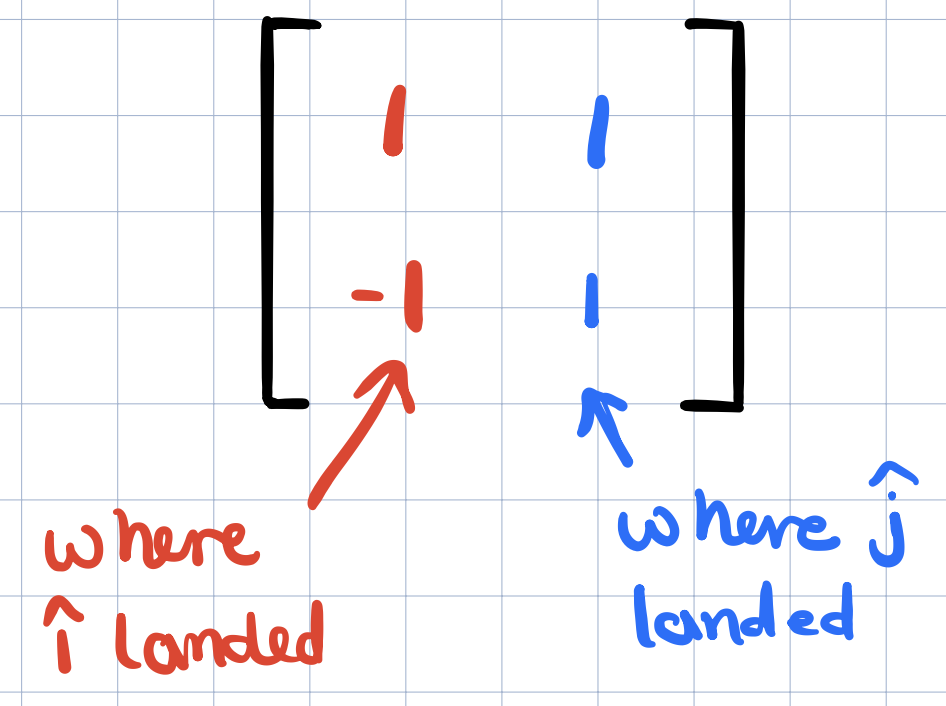 1 1
-1 1
where
î landed
where ĵ
landed